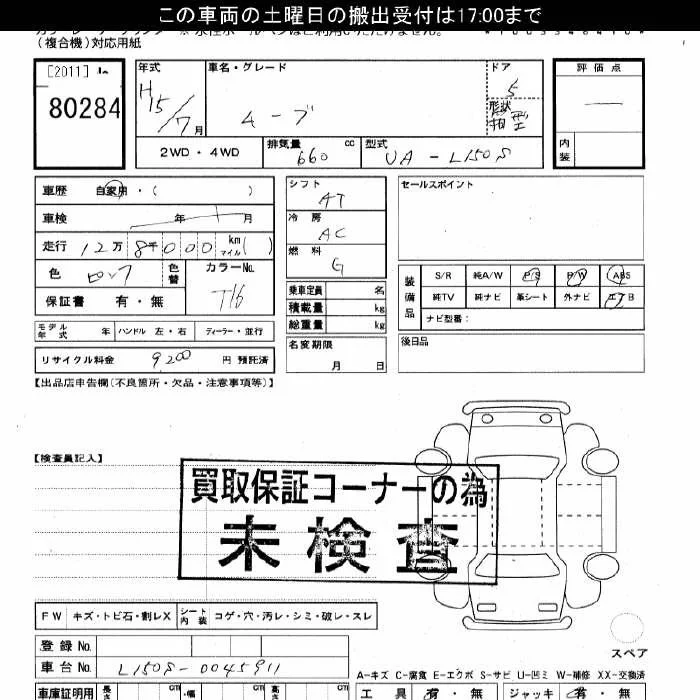 この車両の土曜日の搬出受付は17:00まで
(複合機)対応用紙
[2011]
80284
年式
H15/7 月
車名・グレード
ムーブ
ドア
5
形状
箱型
評価点
内装
2WD・4WD
排気量
660 cc
型式
UA-L150S
車歴 自家用・( )
車検 年 月
走行 12万8千000 km マイル ( )
色
色替
カラーNo.
T16
保証書 有・無
モデル年式 年 ハンドル 左・右 ディーラー・並行
リサイクル料金 9200 円 預託済
シフト
AT
冷房
AC
燃料
G
乗車定員 名
積載量 kg
総重量 kg
名変期限
月 日
セールスポイント
装備品
S/R 純A/W P/S P/W ABS
純TV 純ナビ 革シート 外ナビ エアB
ナビ型番:
後日品
【出品店申告欄(不良箇所・欠品・注意事項等)】
【検査員記入】
買取保証コーナーの為
未検査
FW キズ・トビ石・割レX シート内装 コゲ・穴・汚レ・シミ・破レ・スレ
スペア
登録No.
車台No. L150S-0045911
A-キズ C-腐食 E-エクボ S-サビ U-凹ミ W-補修 XX-交換済
車庫証明用 長さ cm 幅 cm 高さ cm
工具 有・無 ジャッキ 有・無